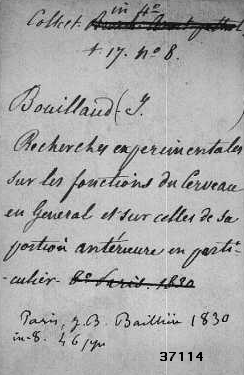 in 4o
Collect.
t. 17. no 8.
Bouillaud (J.
Recherches experimentales
sur les fonctions du Cerveau
en General et sur celles de sa
portion antérieure en parti-
-culier. 8o Paris. 1830
Paris, J. B. Baillière 1830
in-8. 46 pp
37114